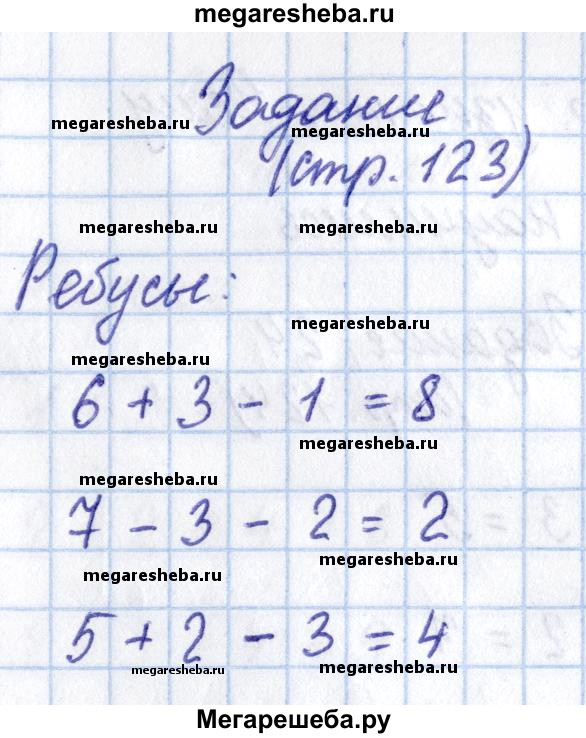 megaresheba.ru
Задание
megaresheba.ru
megaresheba.ru
(стр. 123)
megaresheba.ru
megaresheba.ru
Ребусы:
megaresheba.ru
megaresheba.ru
6 + 3 - 1 = 8
megaresheba.ru
megaresheba.ru
7 - 3 - 2 = 2
megaresheba.ru
megaresheba.ru
5 + 2 - 3 = 4
megaresheba.ru
megaresheba.ru
Мегарешеба.ру